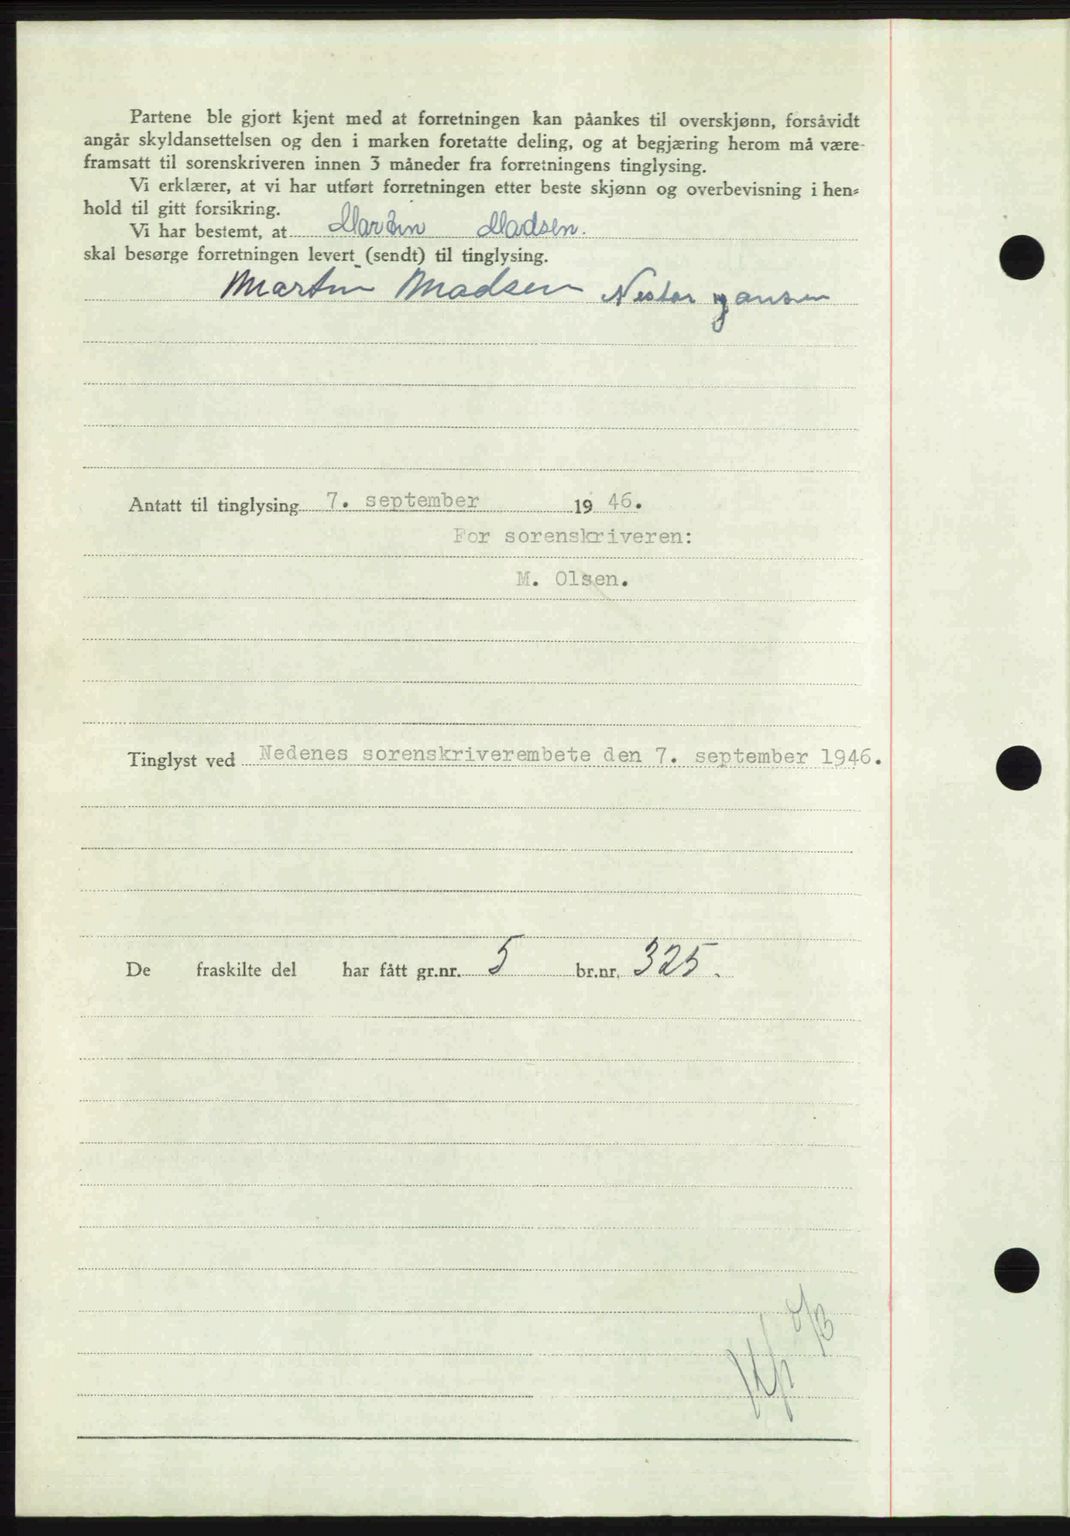 Partene ble gjort kjent med at forretningen kan påankes til overskjønn, forsåvidt
angår skyldansettelsen og den i marken foretatte deling, og at begjæring herom må være
framsatt til sorenskriveren innen 3 måneder fra forretningens tinglysing.
Vi erklærer, at vi har utført forretningen etter beste skjønn og overbevisning i hen-
hold til gitt forsikring.
Vi har bestemt, at Martin Madsen.
skal besørge forretningen levert (sendt) til tinglysing.
Martin Madsen Nestor Jansen
Antatt til tinglysing 7. september 1946.
For sorenskriveren:
M. Olsen.
Tinglyst ved Nedenes sorenskriverembete den 7. september 1946.
De fraskilte del har fått gr.nr. 5 br.nr. 325.